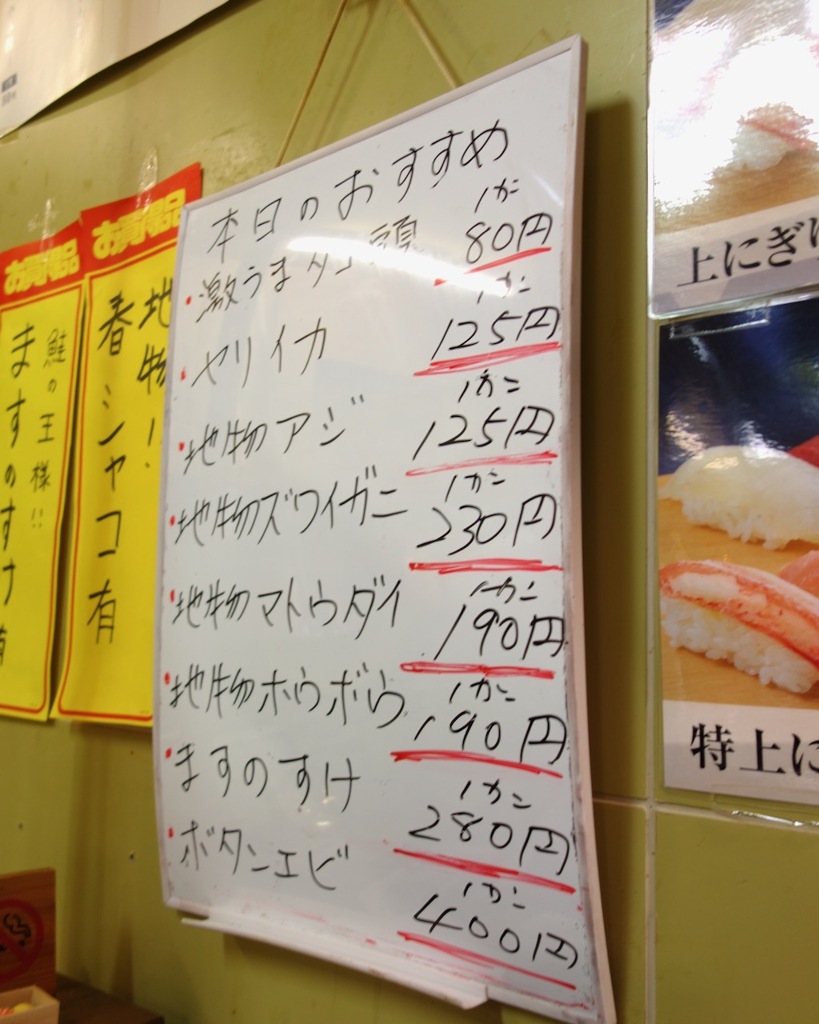 本日のおすすめ
激うまタコ頭 1かん 80円
ヤリイカ 1かん 125円
地物アジ 1かん 125円
地物ズワイガニ 1かん 230円
地物マトウダイ 1かん 190円
地物ホウボウ 1かん 190円
ますのすけ 1かん 280円
ボタンエビ 1かん 400円
お買得品
地物!
春シャコ有
お買得品
鮭の王様!!
ますのすけ有
上にぎ
特上に